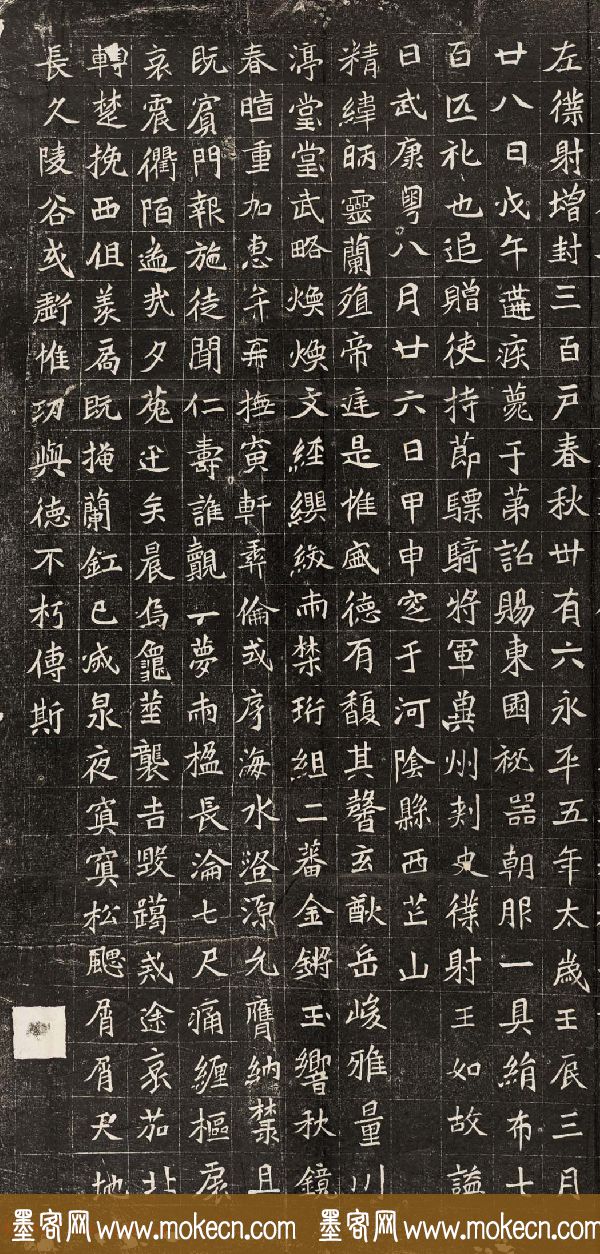 左僕射增封三百戶春秋卅有六永平五年太歲壬辰三月
廿八日戊午遘疾薨于第詔賜東園祕器朝服一具絹布七
百匹礼也追贈使持節驃騎將軍冀州刾史僕射王如故謚
曰武康粵八月廿六日甲申窆于河陰縣西芒山
精緯昞靈蘭殖帝庭是惟盛德有馥其馨玄猷岳峻雅量川
渟堂堂武略煥煥文經纓紱兩禁珩組二蕃金鏘玉響秋鏡
春暄重加惠牟再撫寅軒彝倫式序海水澄源允膺納麓且
既賓門報施徒聞仁壽誰覿一夢兩楹長淪七尺痛纏樞扆
哀震衢陌逝我夕菟迋矣晨烏龜筮襲吉毀躅戒途哀茄北
轉楚挽西徂羨扃既掩蘭釭已滅泉夜寘寘松颸屑屑天地
長久陵谷或虧惟功與德不朽傳斯
墨客网www.mokecn.com 墨客网www.mokecn.com